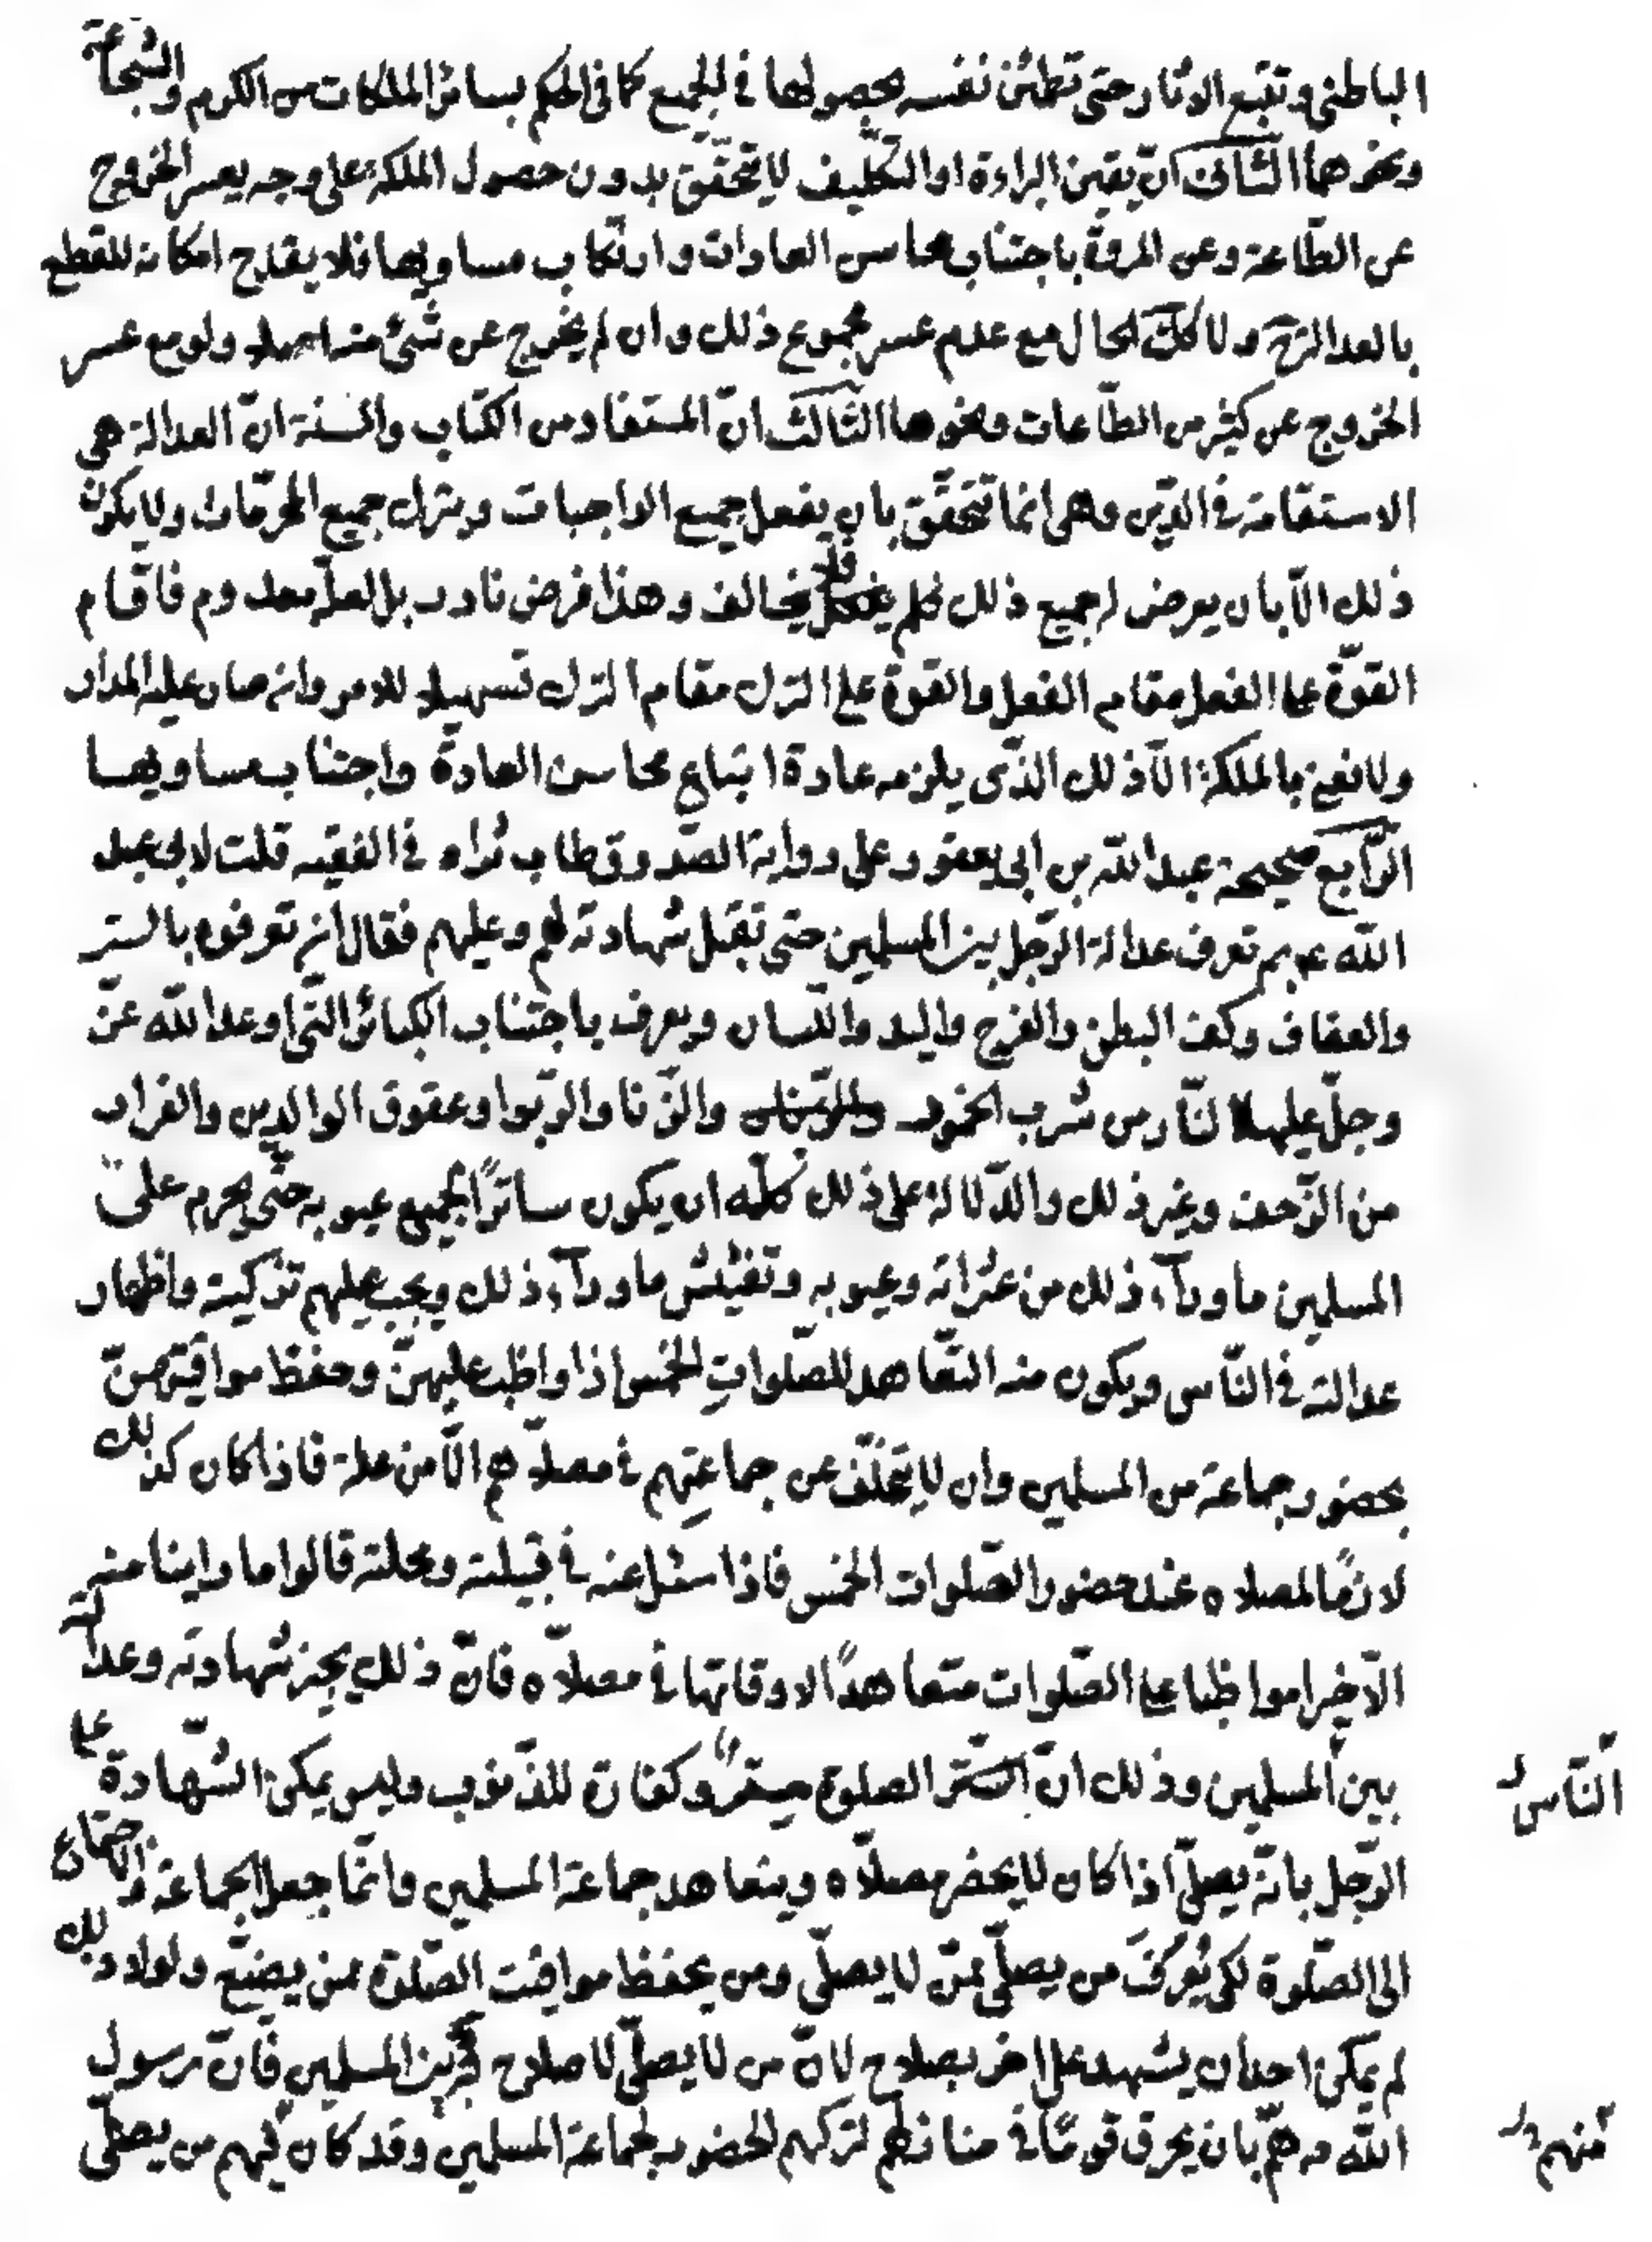 الباطني وتتبع الاثار حتى تطئن نفسه بحصولها في الجميع كما في الحكم بسائر الملكات من الكرم والشجاعة
ونحوهما الثّانى انّ يقين البراءة او التكليف لا يتحقّق بدون حصول الملكة على وجه يعسر الخروج
عن الطّاعة وعن المروّة باجتناب محاسن العادات وارتكاب مساويها فلا يقدح امكانه للقطع
بالعدالة ولا كلّ الحال مع عدم عسر مجموع ذلك وان لم يخرج عن شئ منه اصلا ولو مع عسر
الخروج عن كثير من الطّاعات ونحوها الثّالث انّ المستفاد من الكتاب والسنة انّ العدالة هى
الاستقامة فى الدّين وهى انما تتحقّق بان يفعل جميع الواجبات ويترك جميع المحرّمات ولا يكون
ذلك الّا بان يعرض له جميع ذلك فلم يخالف وهذا فرض نادر بل لعلّه معدوم فاقام
القوّة على الفعل مقام الفعل والقوة على الترك مقام الترك تسهيلا للامر وانه صار عليه المدار
ولا نعنى بالملكة الّا ذلك الذّى يلزمه عادة اتباع محاسن العادة واجتناب مساويها
الرّابع صحيحة عبد اللّه بن ابى يعفور على رواية الصّدوق طاب ثراه فى الفقيه قلت لابى عبد
اللّه ع بم تعرف عدالة الرّجل بين المسلمين حتى تقبل شهادته لهم وعليهم فقال ان تعرفوه بالستر
والعفاف وكف البطن والفرج واليد واللّسان ويعرف باجتناب الكبائر الّتى اوعد اللّه عزّ
وجلّ عليها النّار من شرب الخمور والزّنا والرّبوا وعقوق الوالدين والفرار
من الزّحف وغير ذلك والدّلالة على ذلك كلّه ان يكون ساترًا لجميع عيوبه حتّى يحرم على
المسلمين ما ورآء ذلك من عثراته وعيوبه وتفتيش ما ورآء ذلك ويجب عليهم تزكيته واظهار
عدالته فى النّاس ويكون منه التّعاهد للصّلوات الخمس اذا واظب عليهنّ وحفظ مواقيتهنّ
بحضور جماعة من المسلمين وان لا يتخلّف عن جماعتهم فى مصلّاهم الّا من علة فاذا كان كذلك
لازمًا لمصلاه عند حضور الصّلوات الخمس فاذا سئل عنه فى قبيلته ومحلته قالوا ما راينا منه
الّا خيرا مواظبا على الصّلوات متعاهدًا لاوقاتها فى مصلّاه فانّ ذلك يجيز شهادته وعدالته
بين المسلمين وذلك انّ الصلوة ستر وكفارة للذّنوب وليس يمكن الشّهادة على
الرّجل بانّه يصلّى اذا كان لا يحضر مصلّاه ويتعاهد جماعة المسلمين وانّما جعل الجماعة والاجتماع
الى الصّلوة لكى يُعرَف من يصلّى ممّن لا يصلّى ومن يحفظ مواقيت الصّلوة ممن يضيّع ولولا ذلك
لم يمكن احدا ان يشهد على اخر بصلاح لانّ من لا يصلّى لا صلاح له بين المسلمين فانّ رسول
اللّه ص همّ بان يحرق قومًا فى منازلهم لتركهم الحضور لجماعة المسلمين وقد كان فيهم من يصلّى
النّاس
منهم